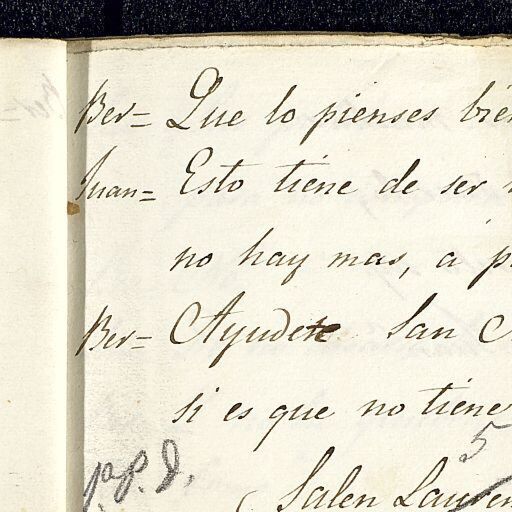 Ber= Que lo pienses bien
Juan= Esto tiene de ser
no hay mas, á
Ber= Ayudete San
si es que no tiene
5
p.p.D.
Salen